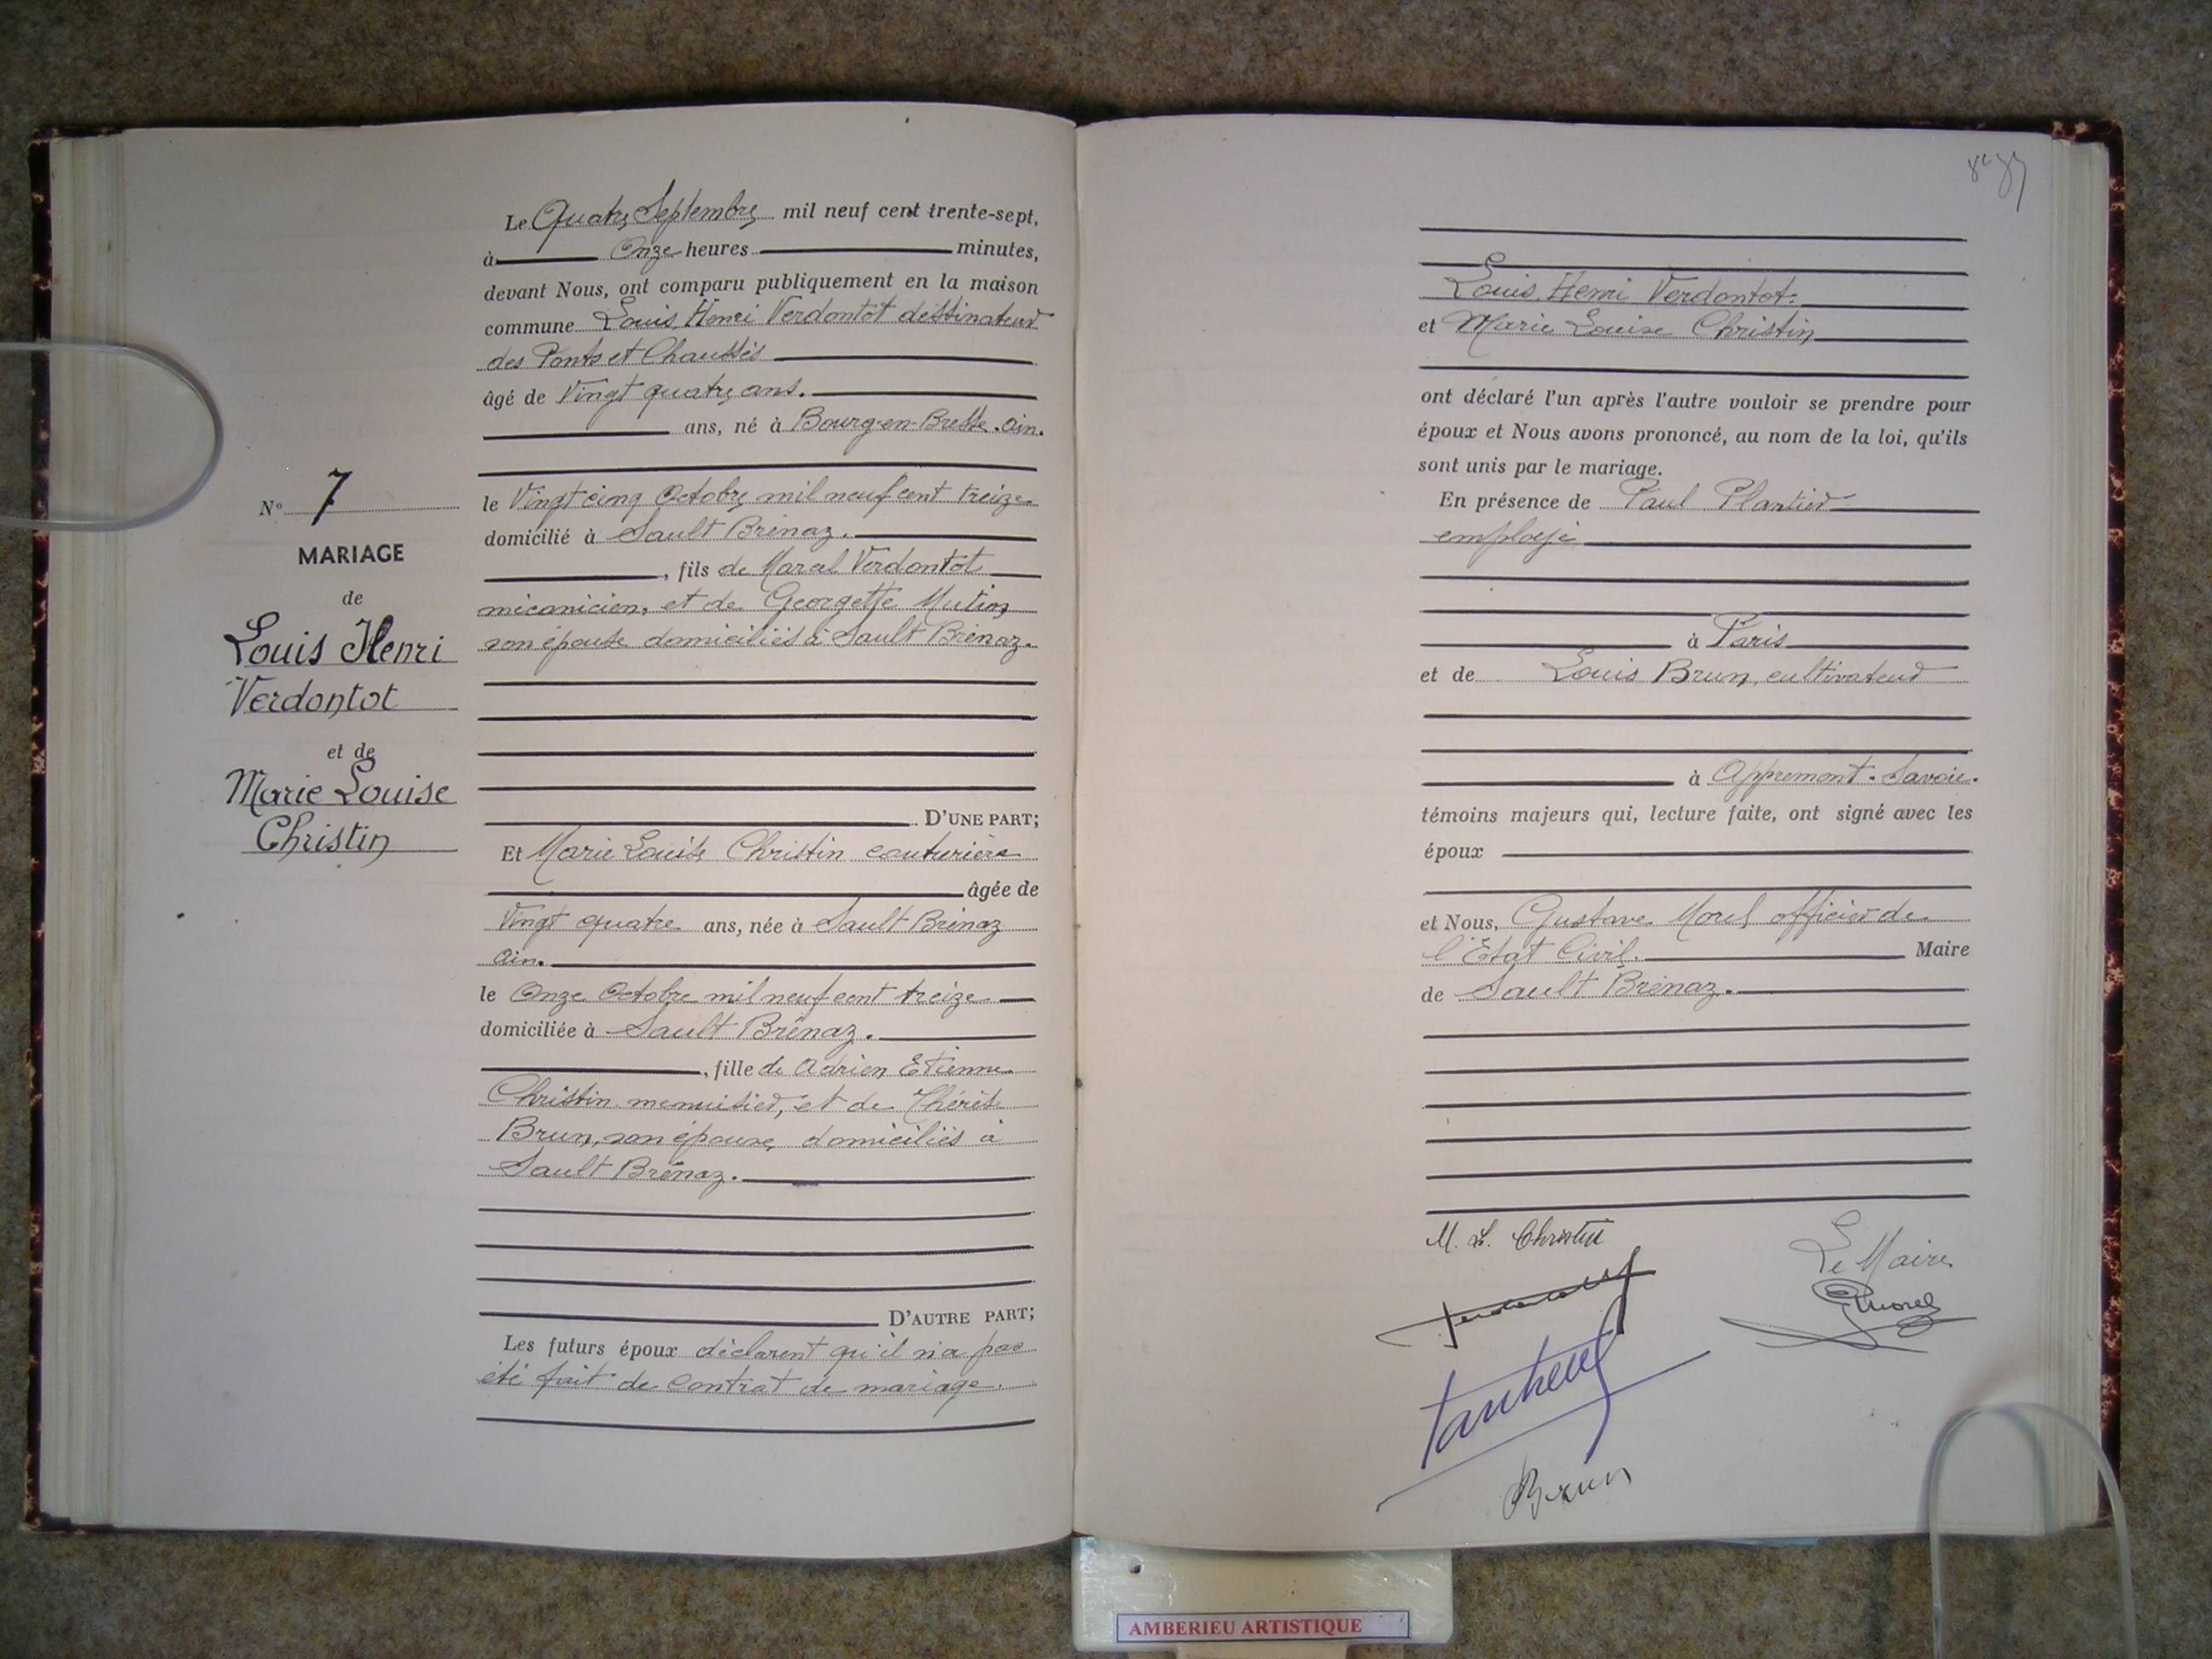 N° 7
MARIAGE
de
Louis Henri
Verdontot
et de
Marie Louise
Christin
Le Quatre Septembre mil neuf cent trente-sept,
à Onze heures minutes,
devant Nous, ont comparu publiquement en la maison
commune Louis Henri Verdontot dessinateur
des Ponts et Chaussés
âgé de Vingt quatre ans.
ans, né à Bourg-en-Bresse. Ain.
le Vingt cinq Octobre mil neuf cent treize
domicilié à Sault Brénaz.
, fils de Marcel Verdontot
mécanicien, et de Georgette Mutin
son épouse domiciliés à Sault Brénaz.
D'UNE PART;
Et Marie Louise Christin couturière
âgée de
Vingt quatre ans, née à Sault Brénaz
Ain.
le Onze Octobre mil neuf cent treize
domiciliée à Sault Brénaz.
, fille de Adrien Etienne
Christin menuisier, et de Thérèse
Brun, son épouse, domiciliés à
Sault Brénaz.
D'AUTRE PART;
Les futurs époux déclarent qu'il n'a pas
été fait de contrat de mariage.
Louis Henri Verdontot.
et Marie Louise Christin
ont déclaré l'un après l'autre vouloir se prendre pour
époux et Nous avons prononcé, au nom de la loi, qu'ils
sont unis par le mariage.
En présence de Paul Plantier
employé
à Paris
et de Louis Brun, cultivateur
à Appremont. Savoie.
témoins majeurs qui, lecture faite, ont signé avec les
époux
et Nous, Gustave Morel officier de
l'Etat Civil. Maire
de Sault Brénaz.
M. L. Christin
Le Maire
GMorel
Brun
AMBERIEU ARTISTIQUE